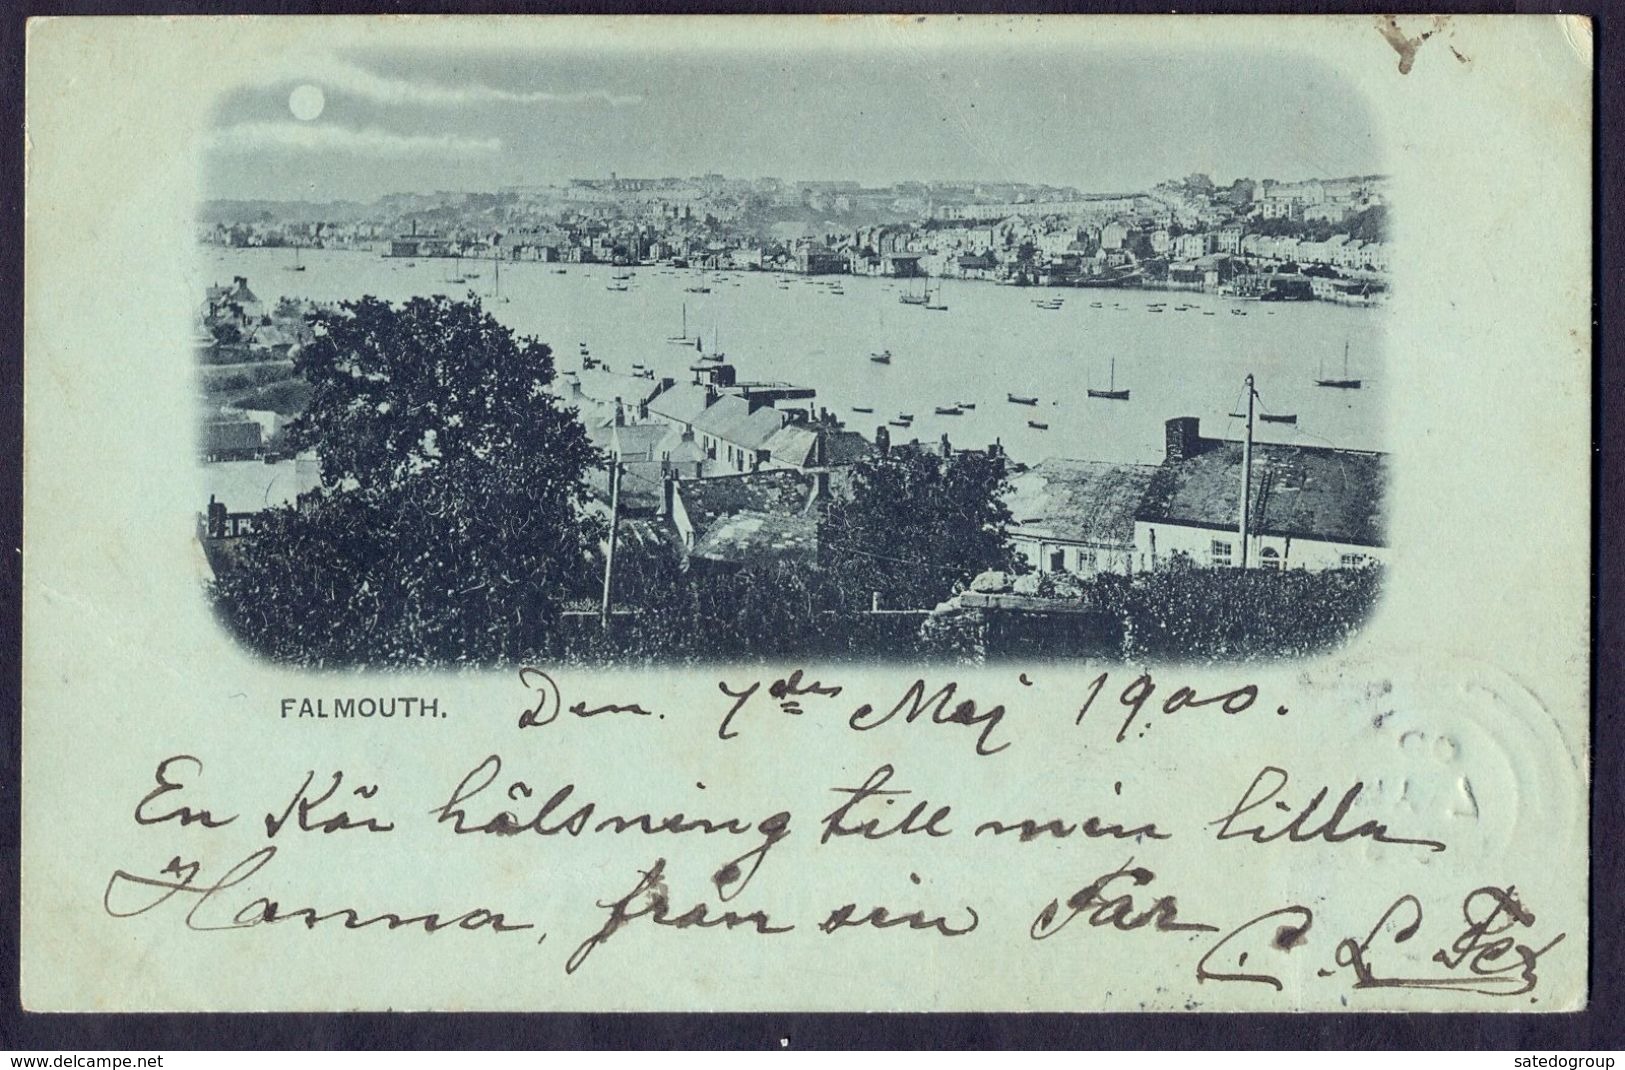 FALMOUTH.
Den. 7de Maj 1900.
En Kär hälsning till min lilla
Hanna, från sin Far C. L.
delcampe.net
satedogroup